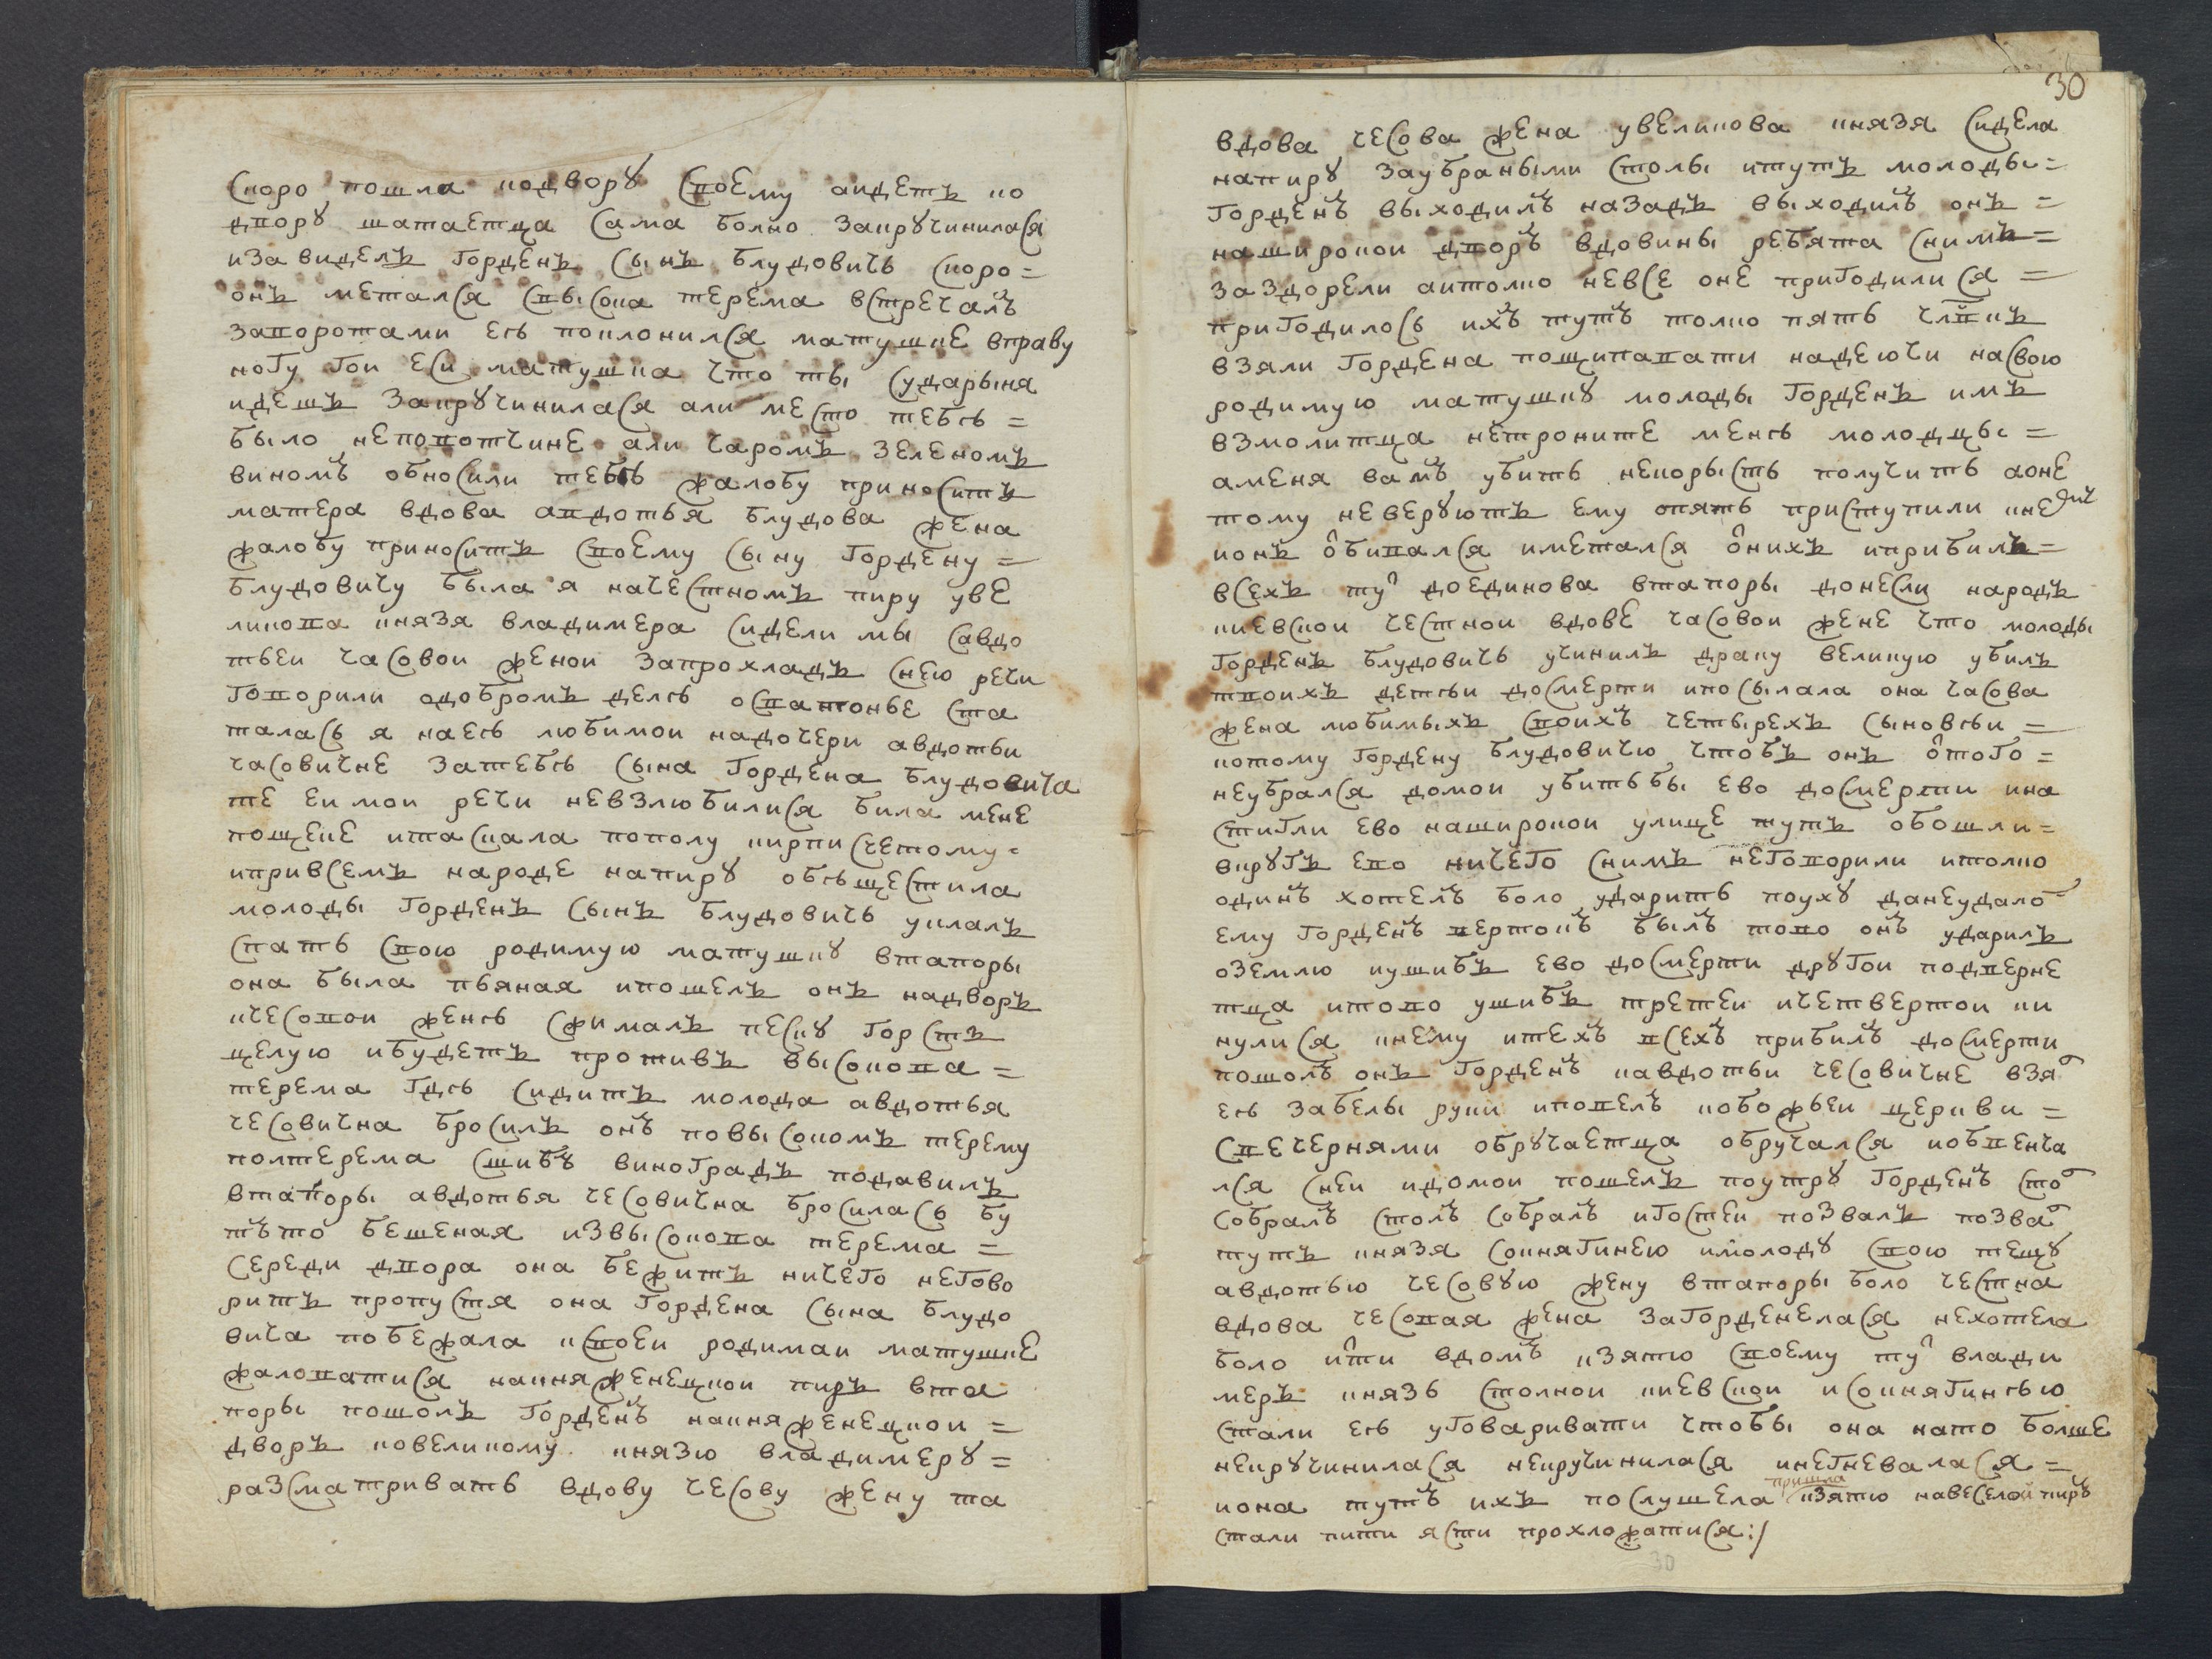 скоро пошла подвору своему аидетъ по
двору шатаетца сама болно закручиниласꙗ
изавиделъ горденъ сынъ блудовичь скоро =
онъ металсꙗ свысока терема встречалъ
заворотами еѣ поклонилсꙗ матушке вправу
ногу гои еси матушка что ты сударыня
идешъ закручиниласꙗ али место тебѣ =
было непоотчине али чаромъ зеленомъ
виномъ обносили тебѣ жалобу приноситъ
матера вдова авдотья блудова жена
жалобу приноситъ своему сыну гордену =
блудовичу была я начестномъ пиру уве
ликова князя владимера сидели мы савдо
тьеи часовои женои запрохладъ снею речи
говорили одобромъ делѣ осватонье ста
талась я наеѣ любимои надочери авдотьи
часовичне затебѣ сына гордена блудовича
те еи мои речи невзлюбилисꙗ била мене
пощеке итаскала пополу кирписчетому =
ипривсемъ народе напиру обѣщестила
молоды горденъ сынъ блудовичь уклалъ
спать свою родимую матушку втапоры
она была пьяная ипошелъ онъ надворъ
кчесовои женѣ сжималъ песку горсть
целую ибудетъ противъ высокова =
терема гдѣ сидитъ молода авдотья
чесовична бросилъ онъ повысокомъ терему
полтерема сшибъ виноградъ подавилъ
втапоры авдотья чесовична бросилась бу
тъто бешеная извысокова терема =
середи двора она бежитъ ничего негово
ритъ пропустя она гордена сына блудо
вича побежала ксвоеи родимаи матушке
жаловатисꙗ накняженецкои пиръ вта
поры пошолъ горденъ накняженецкои =
дворъ ковеликому князю владимеру =
разсматривать вдову чесову жену та
30
вдова чесова жена увеликова князя сидела
напиру заубраными столы итутъ молоды =
горденъ выходилъ назадъ выходилъ онъ =
наширокои дворъ вдовины ребята снимъ =
заздорели аитолко невсе оне пригодилисꙗ =
пригодилось ихъ тутъ толко пять члвкъ
взяли гордена пощипавати надеючи насвою
родимую матушку молоды горденъ имъ
взмолитца нетроните менѣ молодцы =
аменя вамъ убить некорысть получить аоне
тому неверуютъ ему опять приступили кне
ионъ отбивался иметался отнихъ иприбилъ =
всехъ тут доединова втапоры донесли народъ
киевскои честнои вдове часовои жене что молоды
горденъ блудовичь учинилъ драку великую убилъ
твоихъ детѣи досмерти ипосылала она часова
жена любимыхъ своихъ четырехъ сыновѣи =
ктому гордену блудовичю чтобъ онъ оттого =
неубрался домои убитьбы ево досмерти ина
стигли ево наширокои улице тутъ обошли =
вкругъ ево ничего снимъ неговорили итолко
одинъ хотелъ боло ударить поуху данеудало
ему горденъ вертокъ былъ тово онъ ударилъ
оземлю иушибъ ево досмерти другои подверне
тца итово ушибъ третеи ичетвертои ки
нулисꙗ кнему итехъ всехъ прибилъ досмерти
пошолъ онъ горденъ кавдотьи чесовичне взял
еѣ забелы руки иповелъ кобожьеи церкви =
свечернями обручаетца обручался иобвенча
лся снеи идомои пошелъ поутру горденъ стол
собралъ столъ собралъ игостеи позвалъ позвал
тутъ князя сокнягинею имолоду свою тещу
авдотью чесовую жену втапоры боло честна
вдова чесовая жена загорденеласꙗ нехотела
боло итти вдомъ кзятю своему тут влади
меръ князь столнои киевскои исокнягинѣю
стали еѣ уговаривати чтобы она нато болше
некручиниласꙗ некручиниласꙗ инегневаласꙗ =
иона тутъ ихъ послушела пришла кзятю навеселои пиръ
стали пити ясти прохложатисꙗ:/
30